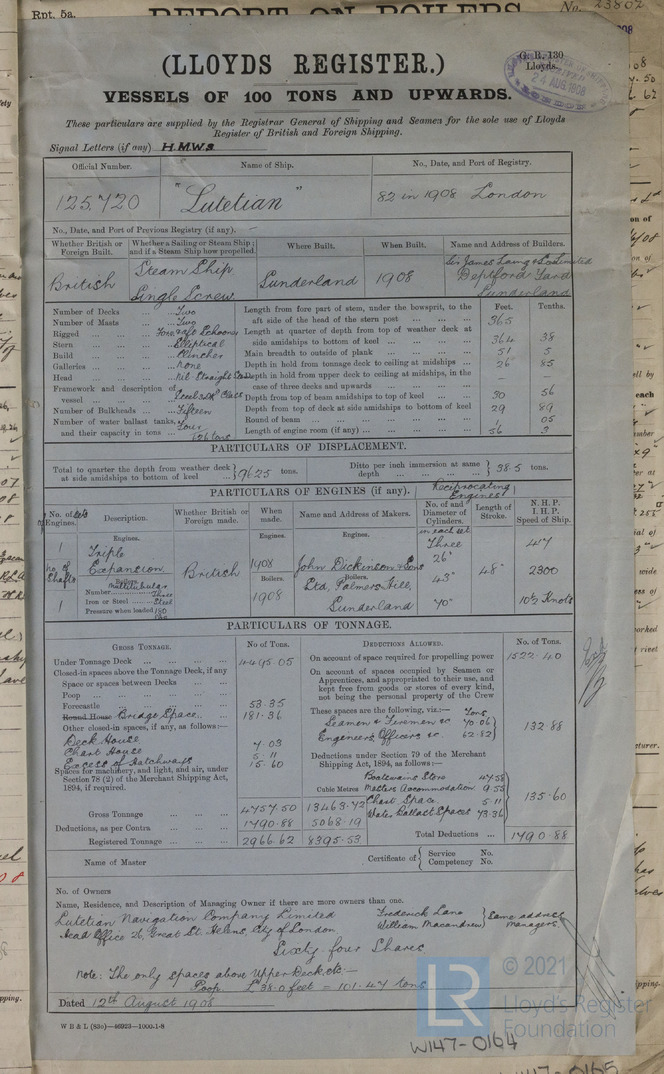 Rpt. 5a.
REPORT ON BOILERS
No. 23802
(LLOYDS REGISTER.)
G. R. 130
Lloyds.
24 AUG 1908
VESSELS OF 100 TONS AND UPWARDS.
These particulars are supplied by the Registrar General of Shipping and Seamen for the sole use of Lloyds
Register of British and Foreign Shipping.
Signal Letters (if any) H.M.W.S.
Official Number. Name of Ship. No., Date, and Port of Registry.
125,720 "Lutetian" 82 in 1908 London
No., Date, and Port of Previous Registry (if any). –
Whether British or Foreign Built. Whether a Sailing or Steam Ship; and if a Steam Ship how propelled. Where Built. When Built. Name and Address of Builders.
British Steam Ship Single Screw Sunderland 1908 Sir James Laing & Co Limited Deptford Yard Sunderland
Feet. Tenths.
Number of Decks Two
Number of Masts Two
Rigged Fore & aft Schooner
Stern Elliptical
Build Clincher
Galleries None
Head
Framework and description of vessel
Number of Bulkheads Fifteen
Number of water ballast tanks, and their capacity in tons Four 1261 tons
Length from fore part of stem, under the bowsprit, to the aft side of the head of the stern post 365
Length at quarter of depth from top of weather deck at side amidships to bottom of keel 364 38
Main breadth to outside of plank 51 5
Depth in hold from tonnage deck to ceiling at midships 26 85
Depth in hold from upper deck to ceiling at midships, in the case of three decks and upwards – –
Depth from top of beam amidships to top of keel 30 56
Depth from top of deck at side amidships to bottom of keel 29 89
Round of beam 1 05
Length of engine room (if any) 56 3
PARTICULARS OF DISPLACEMENT.
Total to quarter the depth from weather deck at side amidships to bottom of keel 9625 tons.
Ditto per inch immersion at same depth 38.5 tons.
PARTICULARS OF ENGINES (if any). Reciprocating Engines
No. of sets of Engines. Description. Whether British or Foreign made. When made. Name and Address of Makers. No. of and Diameter of Cylinders. Length of Stroke. N.H.P. I.H.P. Speed of Ship.
Engines. Engines. Engines. in each set
1 Triple Expansion British 1908 John Dickinson & Sons Ltd, Palmers Hill, Sunderland Three 26" 43" 70" 48" 417 2300 10½ Knots
No. of Shafts 1
Boilers. Multitubular
Number Three
Iron or Steel Steel
Pressure when loaded 180 lbs
Boilers. 1908
Boilers.
PARTICULARS OF TONNAGE.
GROSS TONNAGE. No of Tons. DEDUCTIONS ALLOWED. No. of Tons.
Under Tonnage Deck 4495.05
Closed-in spaces above the Tonnage Deck, if any
Space or spaces between Decks
Poop
Forecastle 53.35
Round House Bridge Space 181.36
Other closed-in spaces, if any, as follows:—
Deck House 7.03
Chart House 5.11
Excess of Hatchways 15.60
Spaces for machinery, and light, and air, under Section 78 (2) of the Merchant Shipping Act, 1894, if required.
Cubic Metres
Gross Tonnage 4757.50 13463.72
Deductions, as per Contra 1790.88 5068.19
Registered Tonnage 2966.62 8395.53
On account of space required for propelling power 1522.40
On account of spaces occupied by Seamen or Apprentices, and appropriated to their use, and kept free from goods or stores of every kind, not being the personal property of the Crew
These spaces are the following, viz.:— Tons
Seamen & Firemen &c 70.06
Engineers, Officers &c. 62.82
132.88
Deductions under Section 79 of the Merchant Shipping Act, 1894, as follows:—
Boatswains Store 47.58
Masters Accommodation 9.55
Chart Space 5.11
Water Ballast Spaces 73.36
135.60
Total Deductions 1790.88
Name of Master
Certificate of Service No. Competency No.
No. of Owners
Name, Residence, and Description of Managing Owner if there are more owners than one.
Lutetian Navigation Company Limited
Head Office 26, Great St. Helens, City of London
Frederick Lane
William Macandrew
Same address Managers
Sixty four Shares
Note: The only spaces above Upper Deck etc:—
Poop L 38.0 feet = 101.47 tons
Dated 12th August 1908
W B & L (83o)—46923—1000-1-8
LR
© 2021
Lloyd's Register
Foundation
W147-0164
W147-0165